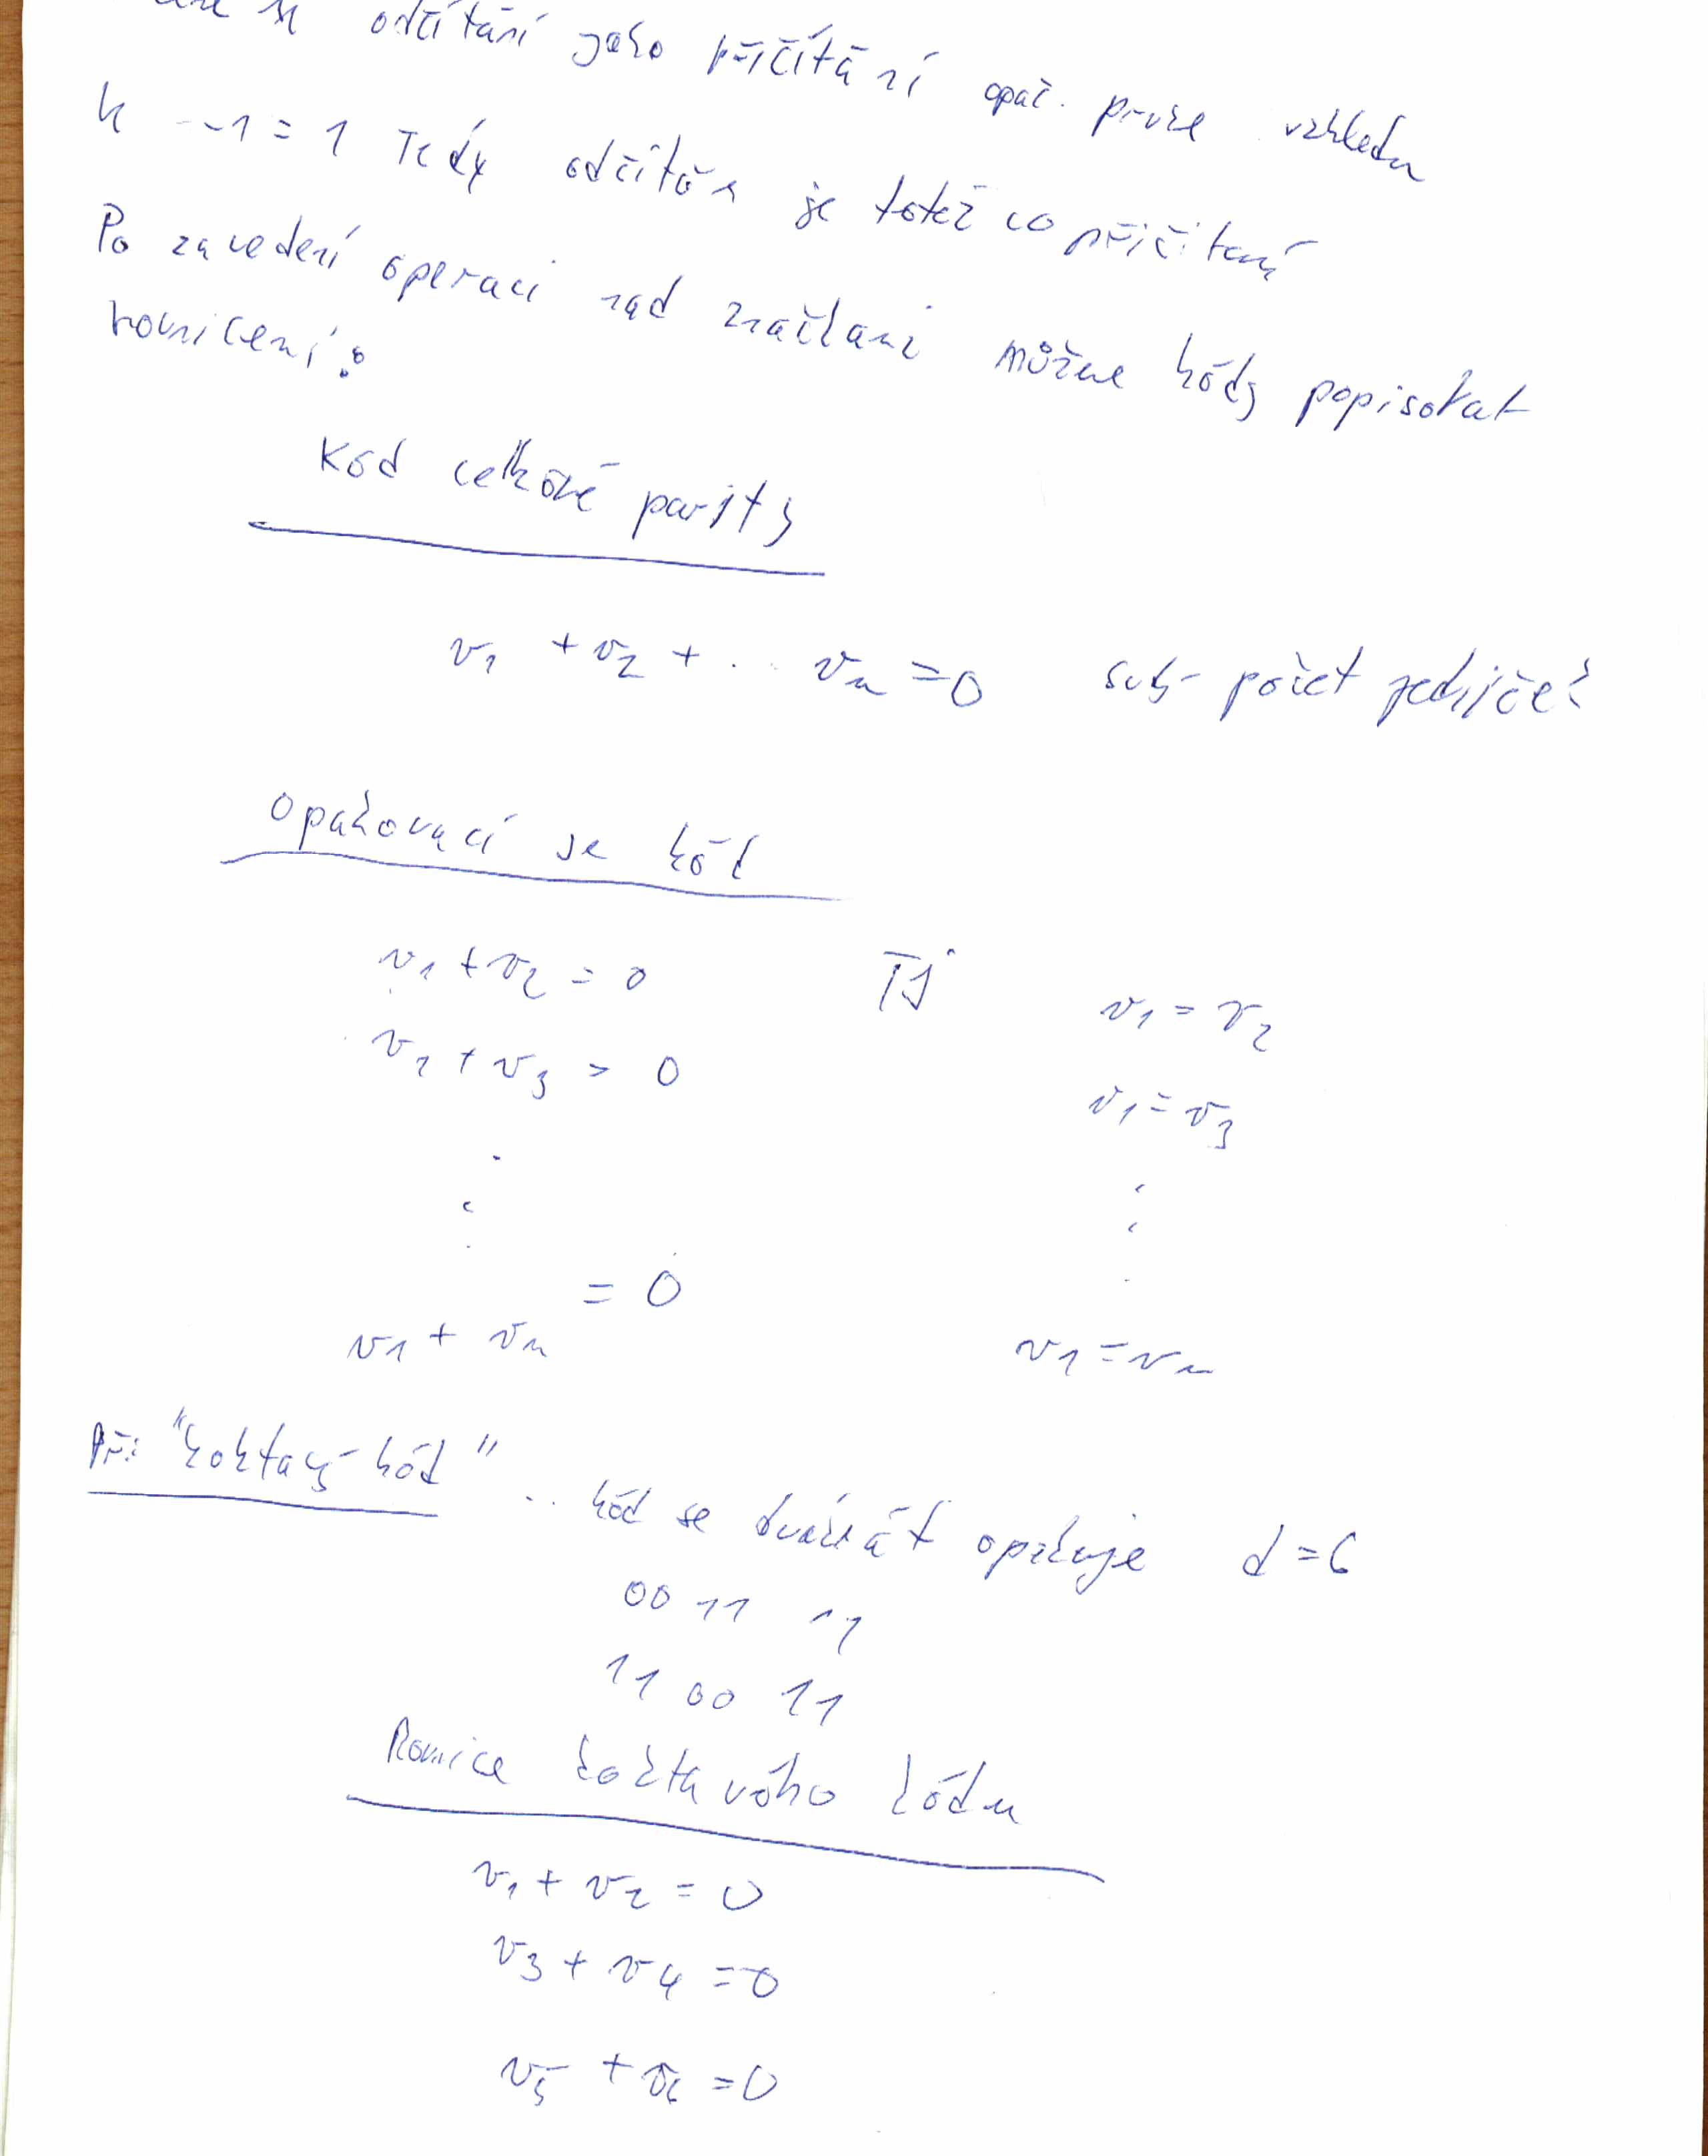 se odčítání jako přičítání opač. prvke vzhledem
k --1 = 1 Tedy odčítán je totéž co přičítaní
Po zavedení operaci nad značkami můžme kódy popisovat
rovnicemi:
Kód celkové parity
v1 + v2 + ... vn = 0 sudý počet jedniček
Opakovací se kód
v1 + v2 = 0 TJ v1 = v2
v1 + v3 = 0 v1 = v3
v1 + vn = 0 v1 = vn
Př: "koktavý kód" .. kód se dvakrát opakuje d = 6
00 11 11
11 00 11
Rovnice koktavého kódu
v1 + v2 = 0
v3 + v4 = 0
v5 + v6 = 0